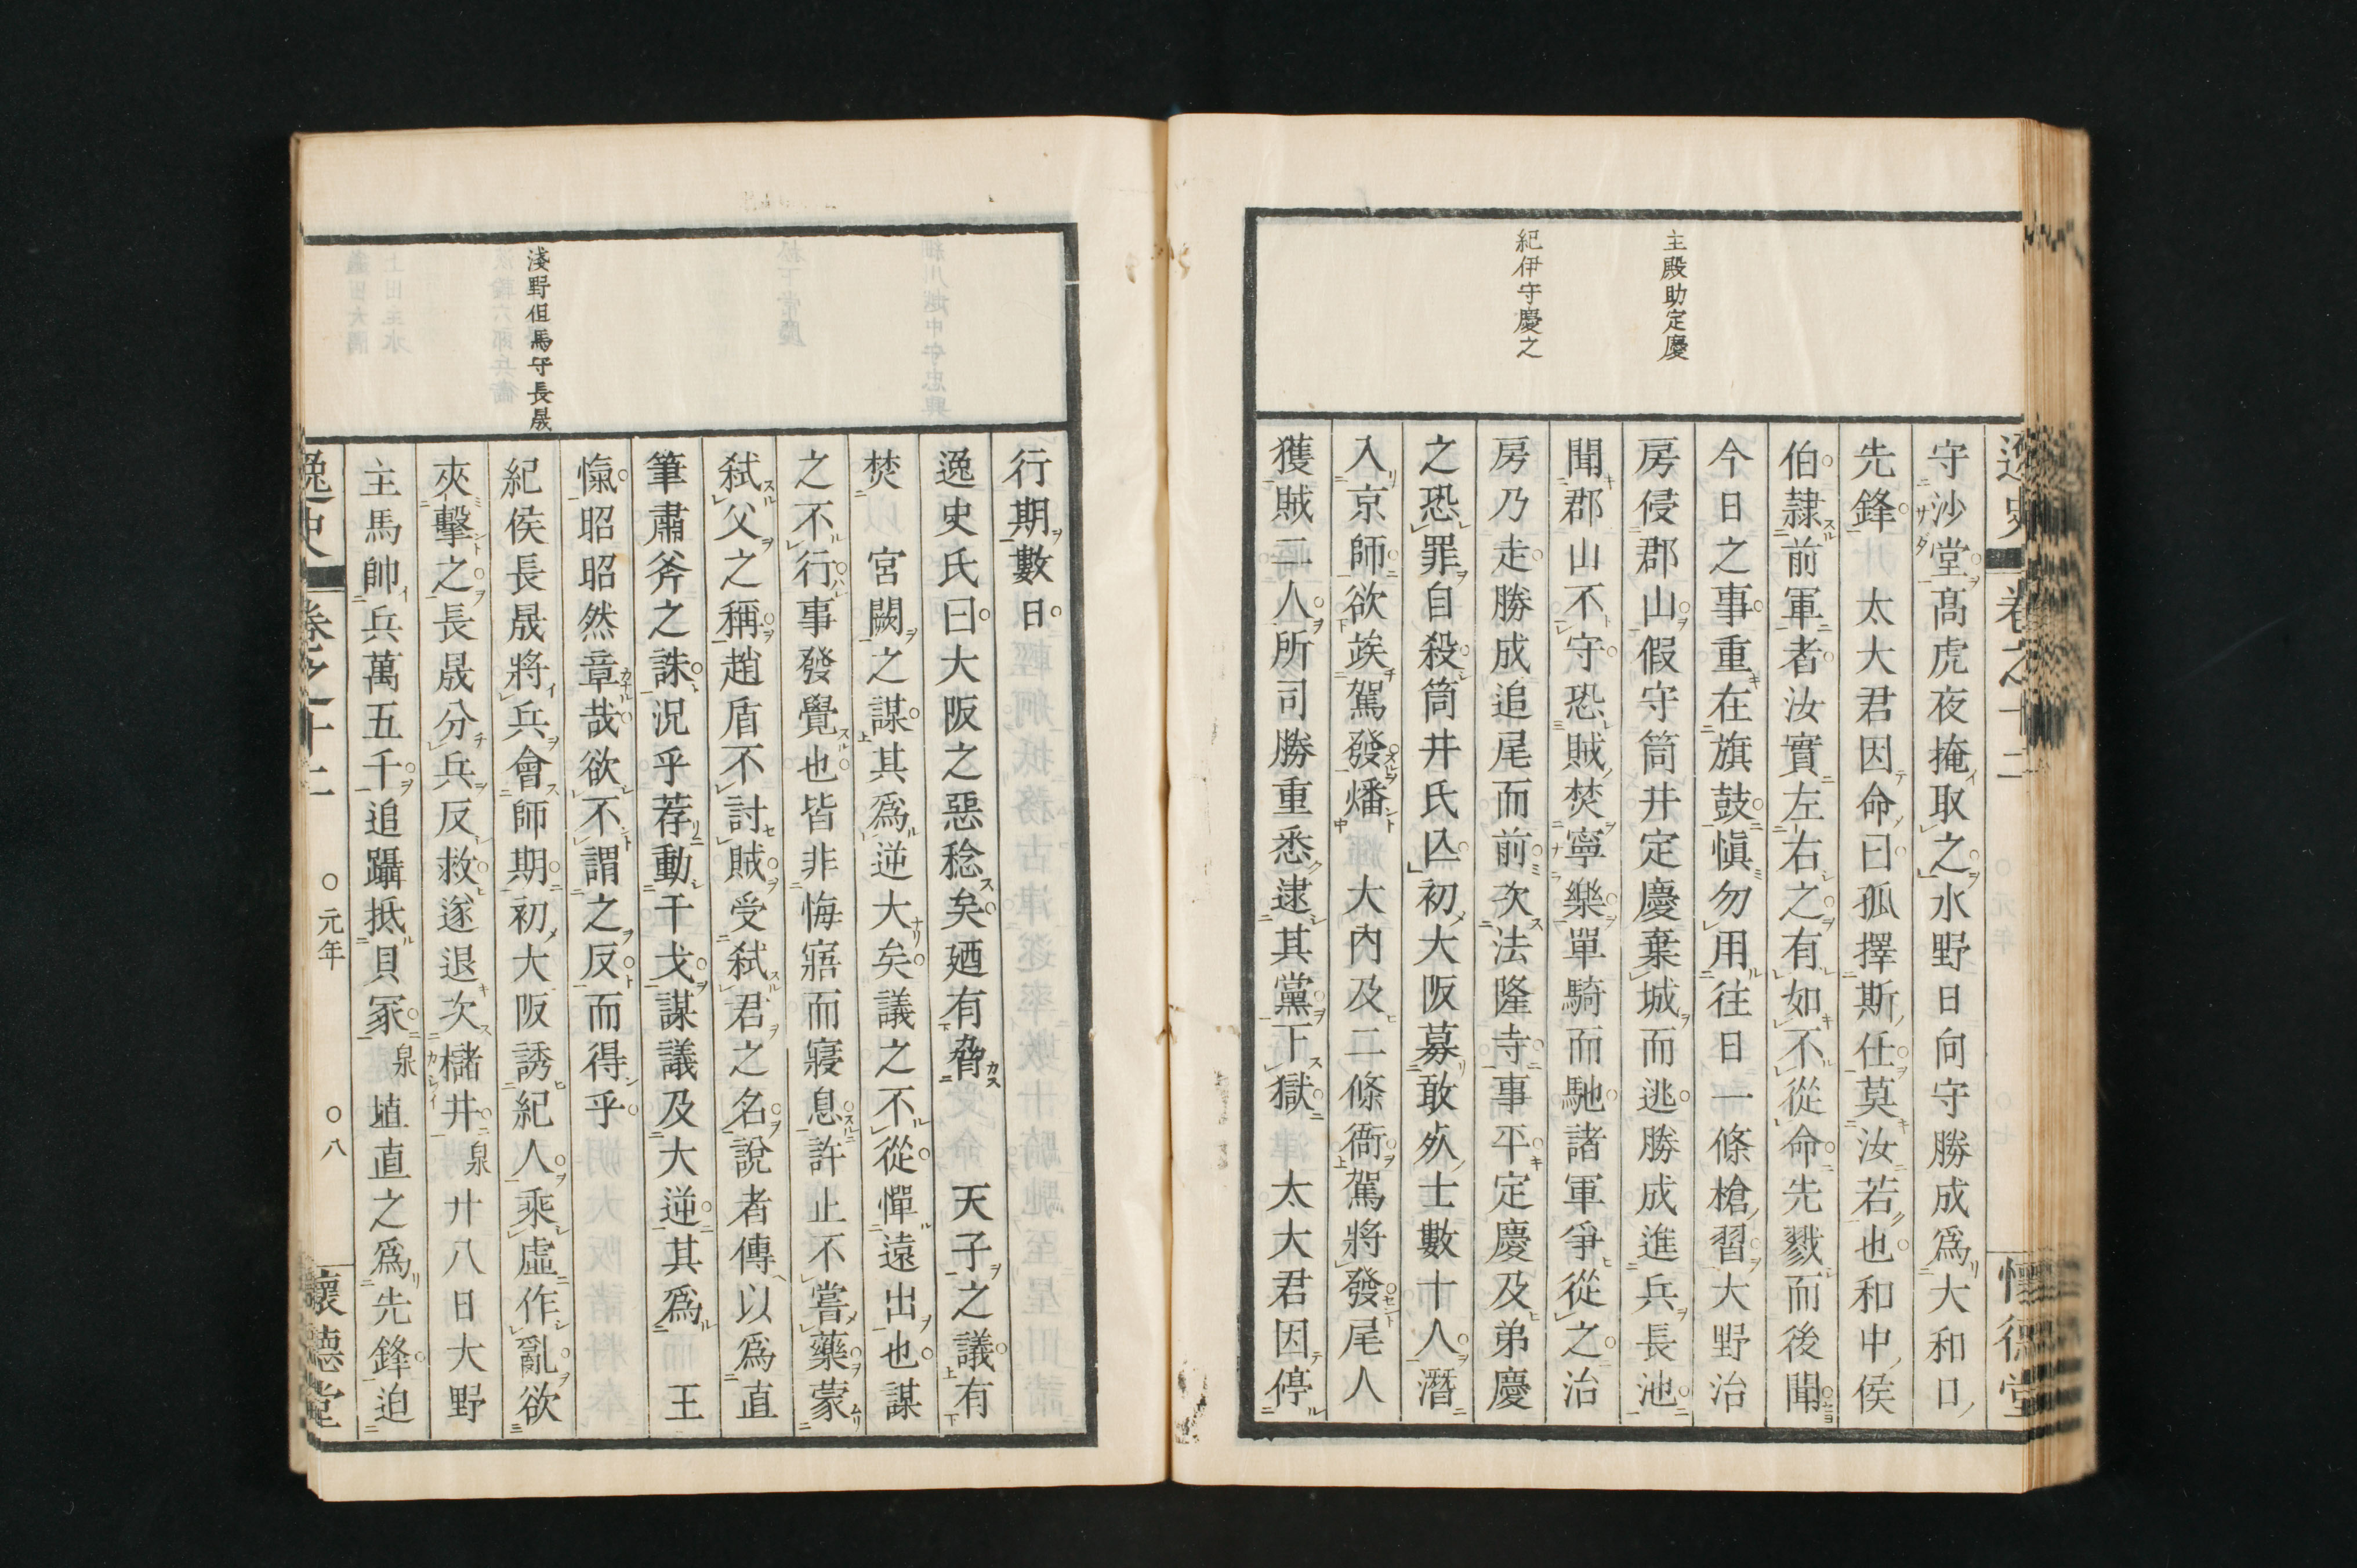 主殿助定慶
紀伊守慶之
逸史 卷之十二 懷德堂
守沙堂高虎夜掩取之水野日向守勝成爲大和口
先鋒 太大君因命曰孤擇斯任莫汝若也和中侯
伯隷前軍者汝實左右之有如不從命先戮而後聞
今日之事重在旗鼓愼勿用往日一條槍習大野治
房侵郡山假守筒井定慶棄城而逃勝成進兵長池
聞郡山不守恐賊焚寧樂單騎而馳諸軍爭從之治
房乃走勝成追尾而前次法隆寺事平定慶及弟慶
之恐罪自殺筒井氏亾初大阪募敢死士數十人潛
入京師欲竢駕發燔 大內及二條衙駕將發尾人
獲賊二人所司勝重悉逮其黨下獄 太大君因停
淺野但馬守長晟
行期數日
逸史氏曰大阪之惡稔矣廼有脅 天子之議有
焚 宮闕之謀其爲逆大矣議之不從憚遠出也謀
之不行事發覺也皆非悔寤而寢息許止不嘗藥蒙
弑父之稱趙盾不討賊受弑君之名說者傳以爲直
筆肅斧之誅況乎荐動干戈謀議及大逆其爲 王
愾昭昭然章哉欲不謂之反而得乎
紀侯長晟將兵會師期初大阪誘紀人乘虛作亂欲
夾擊之長晟分兵反救遂退次櫧井泉廿八日大野
主馬帥兵萬五千追躡抵貝冢泉埴直之爲先鋒迫
逸史 卷之十二 ○元年 ○八 懷德堂